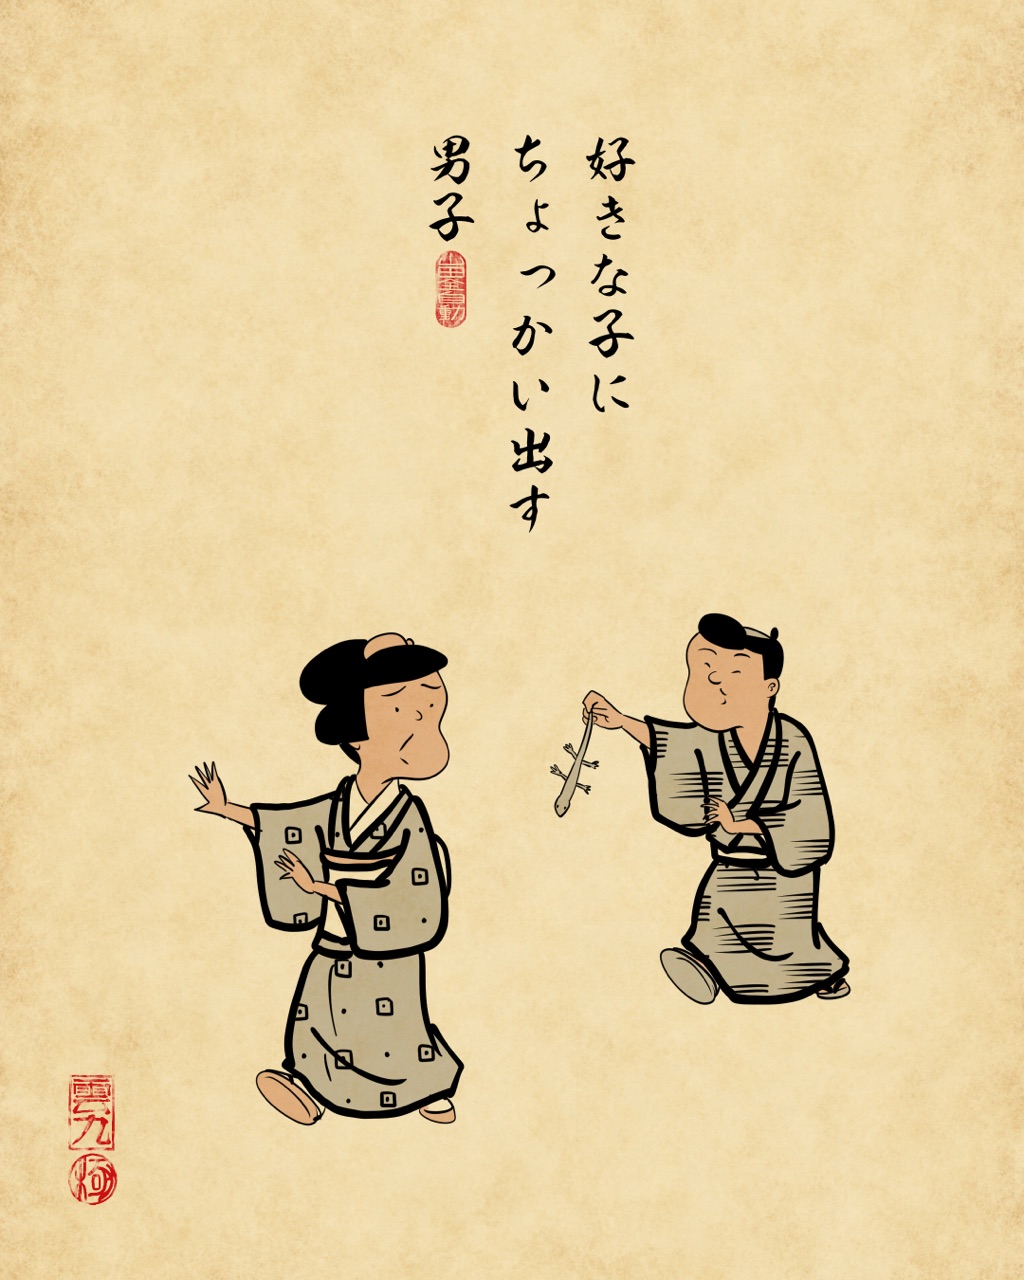 好きな子に
ちょっかい出す
男子